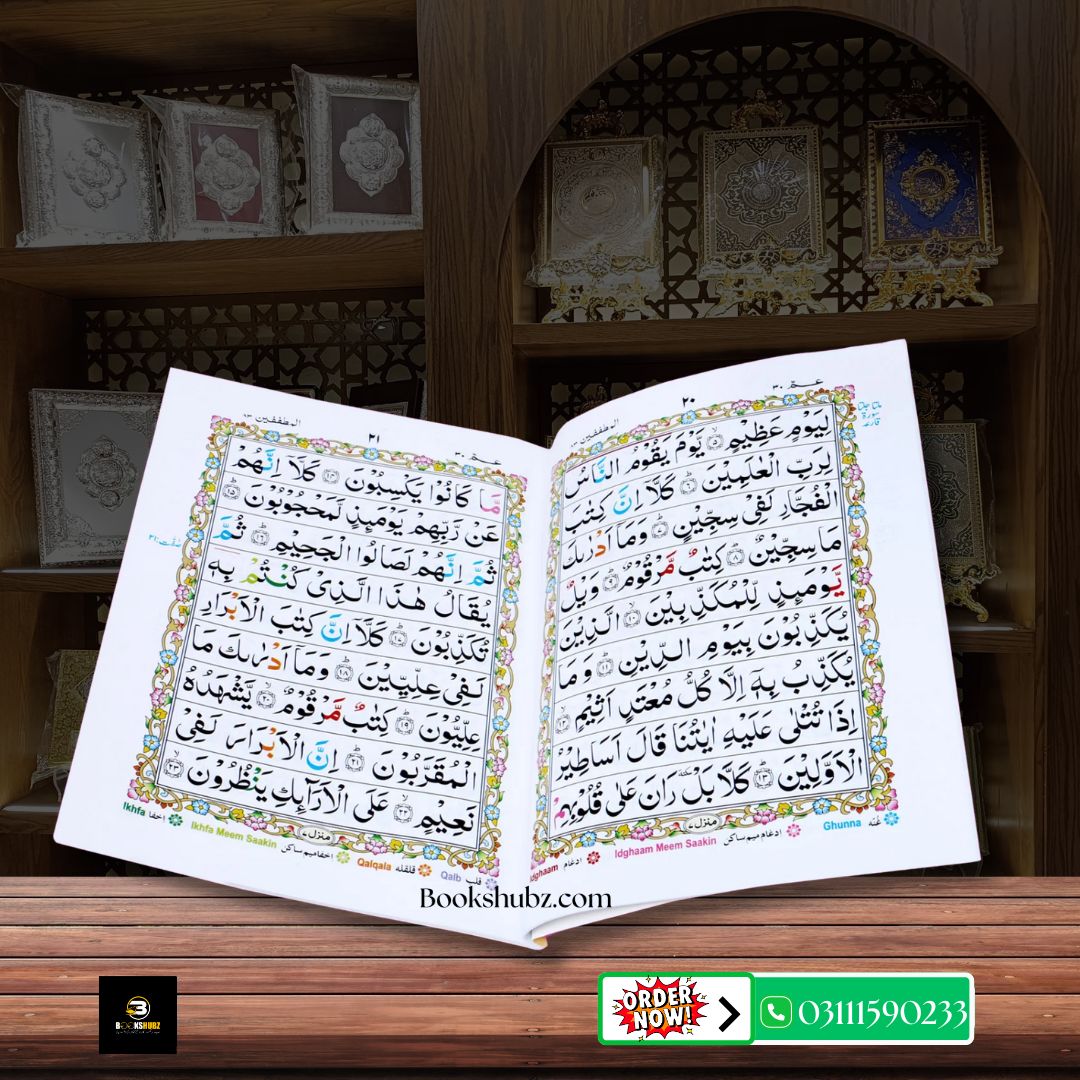 عـمّ ٣٠
٢٠
المطففين ٨٣
لِيَوْمٍ عَظِيْمٍ ۙ﴿٥﴾ يَّوْمَ يَقُوْمُ النَّاسُ
لِرَبِّ الْعٰلَمِيْنَ ؕ﴿٦﴾ كَلَّاۤ اِنَّ كِتٰبَ
الْفُجَّارِ لَفِيْ سِجِّيْنٍ ؕ﴿٧﴾ وَمَاۤ اَدْرٰىكَ
مَا سِجِّيْنٌ ؕ﴿٨﴾ كِتٰبٌ مَّرْقُوْمٌ ؕ﴿٩﴾ وَيْلٌ
يَّوْمَئِذٍ لِّلْمُكَذِّبِيْنَ ۙ﴿١٠﴾ الَّذِيْنَ
يُكَذِّبُوْنَ بِيَوْمِ الدِّيْنِ ؕ﴿١١﴾ وَمَا
يُكَذِّبُ بِهٖۤ اِلَّا كُلُّ مُعْتَدٍ اَثِيْمٍ ۙ﴿١٢﴾
اِذَا تُتْلٰى عَلَيْهِ اٰيٰتُنَا قَالَ اَسَاطِيْرُ
الْاَوَّلِيْنَ ؕ﴿١٣﴾ كَلَّا بَلْ ٚ رَانَ عَلٰى قُلُوْبِهِمْ
منزل ٧
غُنّه Ghunna
ادغام ميم ساكن Idghaam Meem Saakin
ادغام Idghaam
المطففين ٨٣
٢١
عـمّ ٣٠
مَّا كَانُوْا يَكْسِبُوْنَ ﴿١٤﴾ كَلَّاۤ اِنَّهُمْ
عَنْ رَّبِّهِمْ يَوْمَئِذٍ لَّمَحْجُوْبُوْنَ ؕ﴿١٥﴾
ثُمَّ اِنَّهُمْ لَصَالُوا الْجَحِيْمِ ؕ﴿١٦﴾ ثُمَّ
يُقَالُ هٰذَا الَّذِيْ كُنْتُمْ بِهٖ
تُكَذِّبُوْنَ ؕ﴿١٧﴾ كَلَّاۤ اِنَّ كِتٰبَ الْاَبْرَارِ
لَفِيْ عِلِّيِّيْنَ ؕ﴿١٨﴾ وَمَاۤ اَدْرٰىكَ مَا
عِلِّيُّوْنَ ؕ﴿١٩﴾ كِتٰبٌ مَّرْقُوْمٌ ۙ﴿٢٠﴾ يَّشْهَدُهُ
الْمُقَرَّبُوْنَ ؕ﴿٢١﴾ اِنَّ الْاَبْرَارَ لَفِيْ
نَعِيْمٍ ۙ﴿٢٢﴾ عَلَى الْاَرَآئِكِ يَنْظُرُوْنَ ۙ﴿٢٣﴾
منزل ٧
اخفا Ikhfa
اخفا ميم ساكن Ikhfa Meem Saakin
قلقله Qalqala
قلب Qalb
Bookshubz.com
BOOKSHUBZ
ORDER
NOW!
03111590233